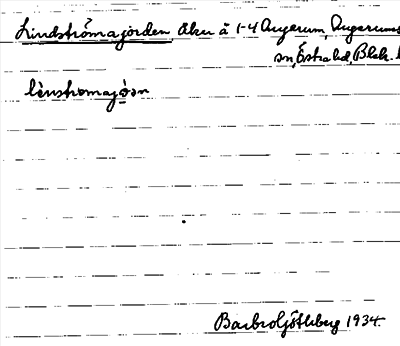 Lindströmajorden, åker å 1-4 Augerum, Augerums
sn, Östra hd, Blek. l
lènstromajọ́ən
Barbro Götlberg 1934.